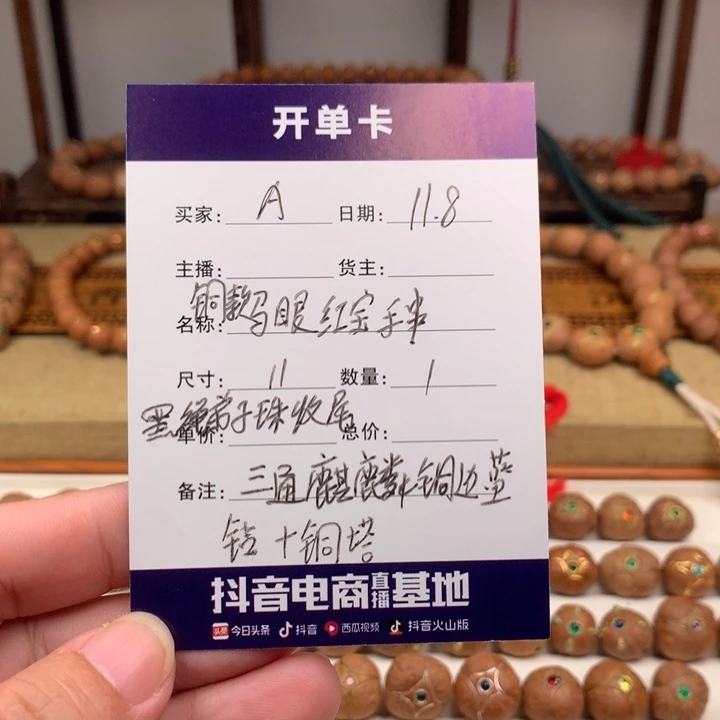 开单卡
买家: A 日期: 11.8
主播: 货主:
名称: 铜款马眼红宝手串
尺寸: 11 数量: 1
单价: 总价:
黑绳子珠收尾
备注: 三通麒麟铜边蓝
钻+铜塔
抖音电商直播基地
头条 今日头条 抖音 西瓜视频 抖音火山版